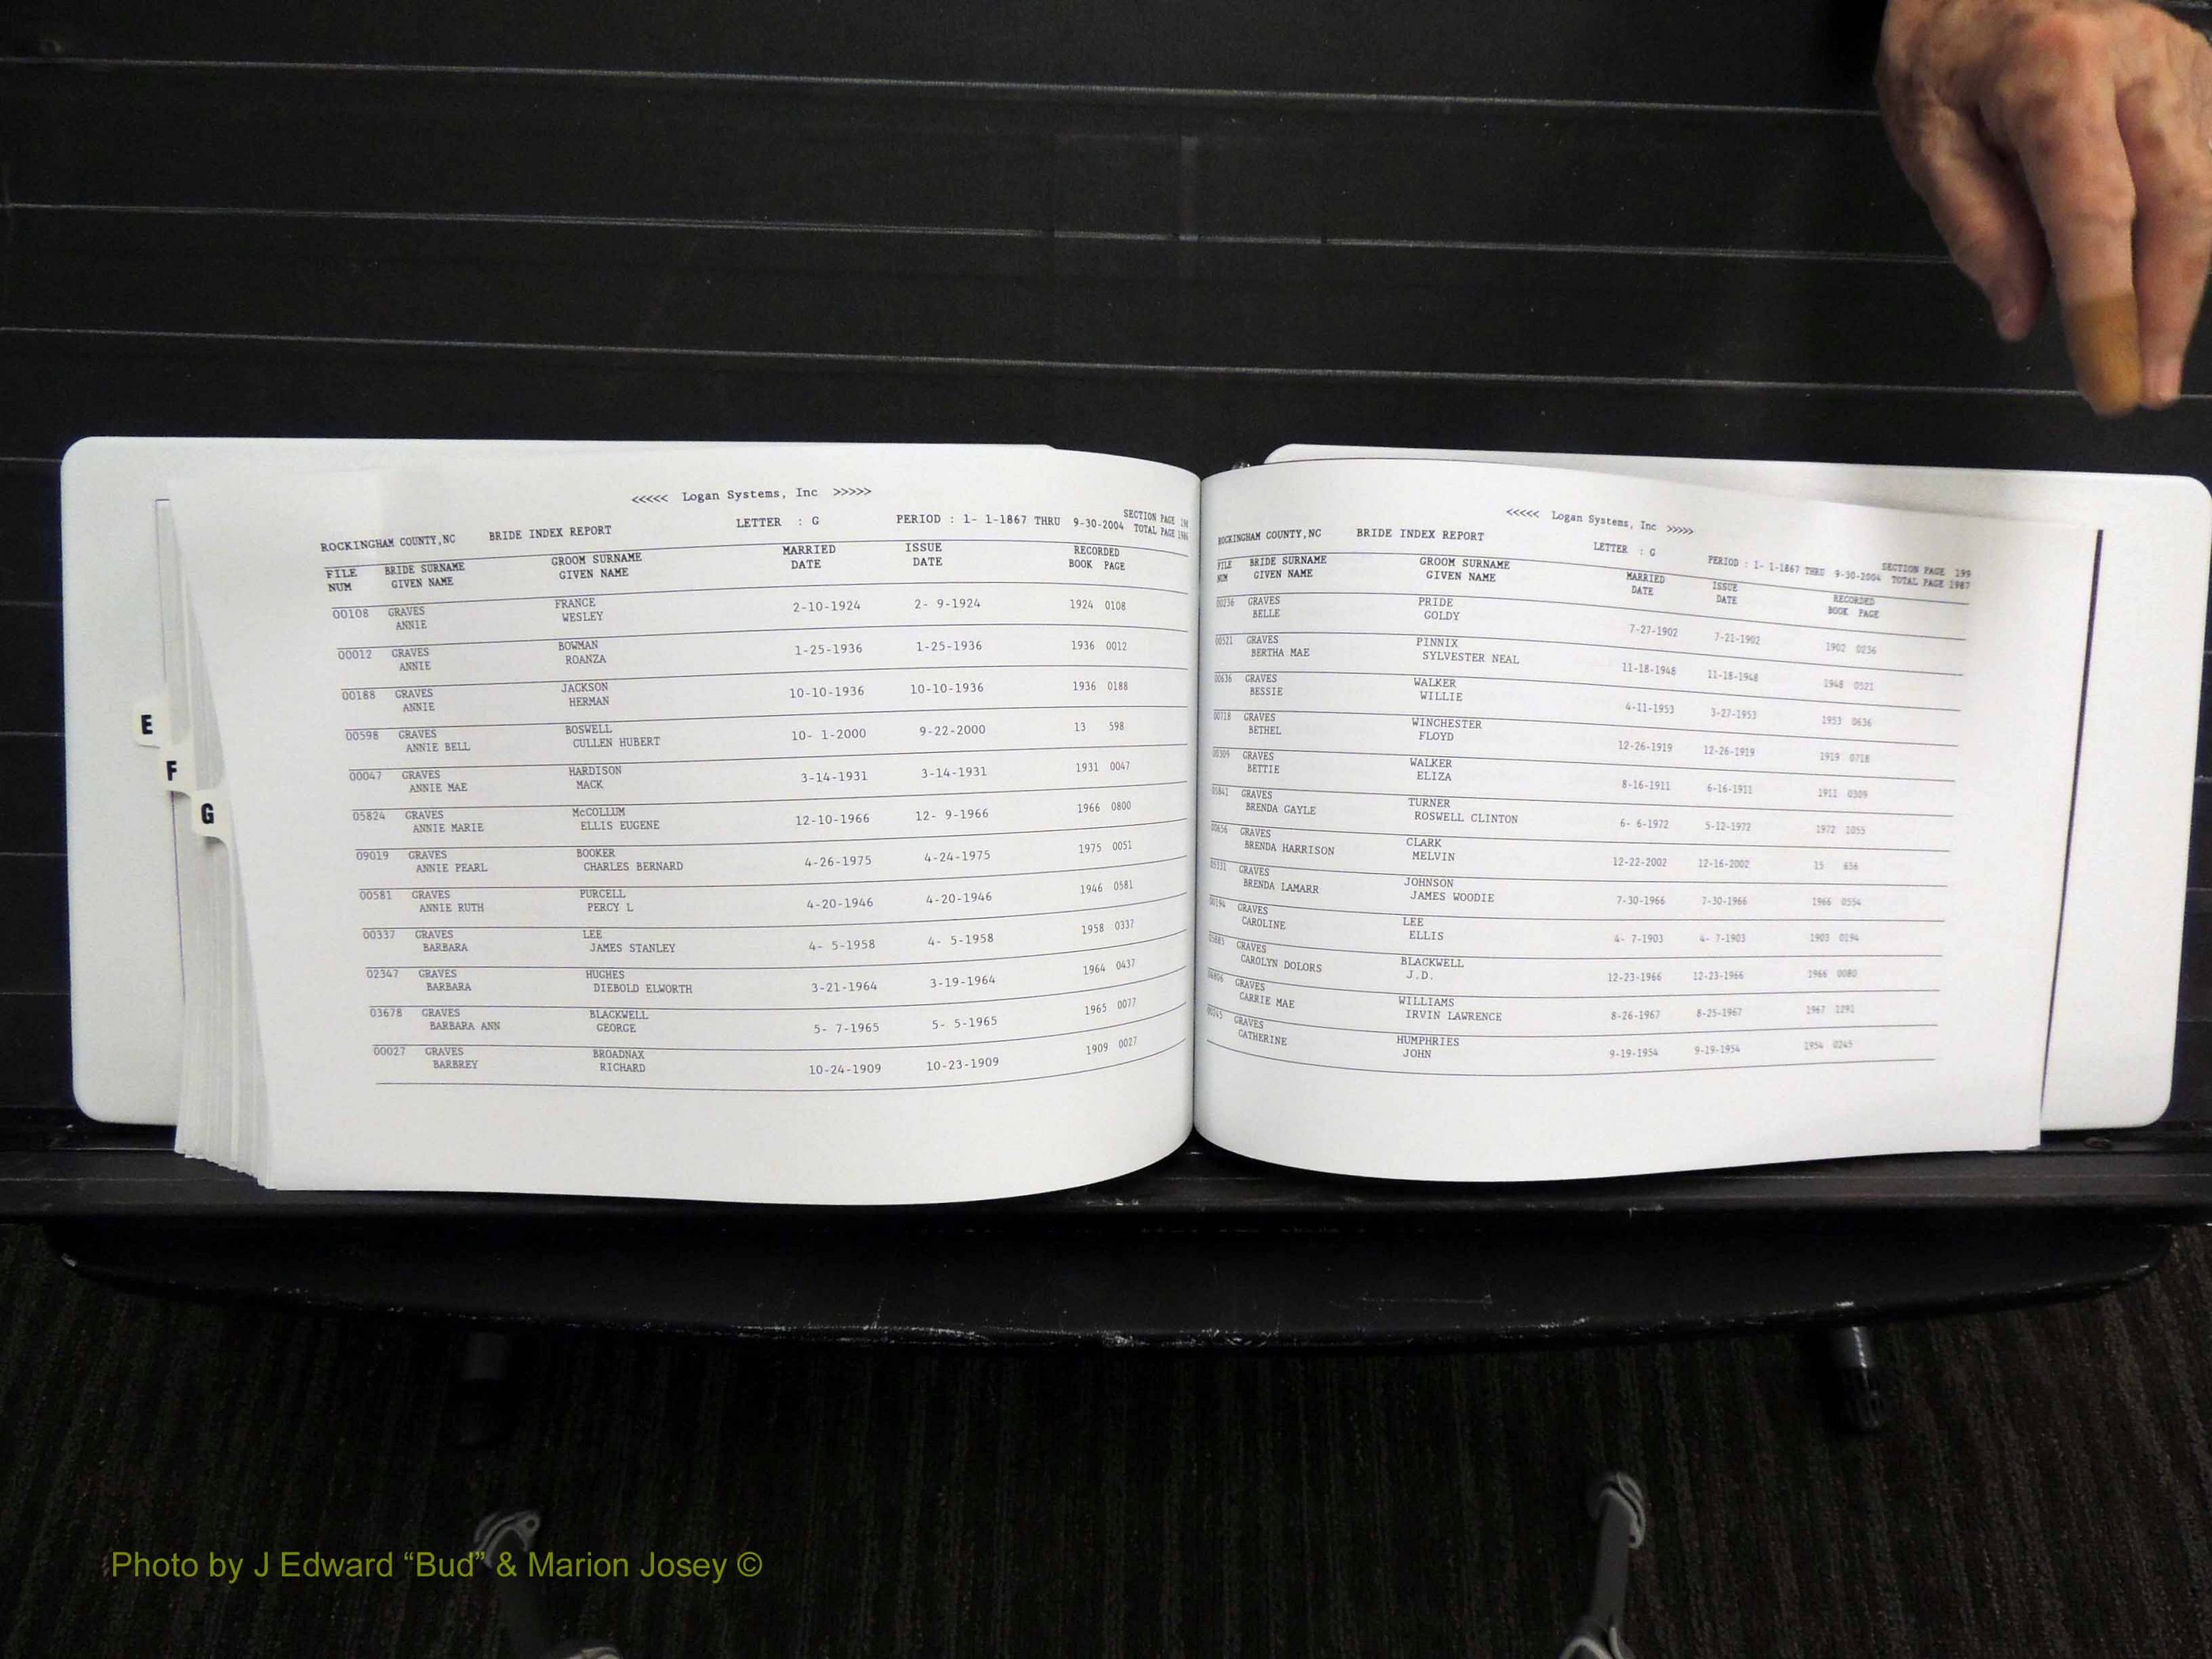 E
F
G
<<<<< Logan Systems, Inc >>>>>
ROCKINGHAM COUNTY,NC BRIDE INDEX REPORT LETTER : G PERIOD : 1- 1-1867 THRU 9-30-2004 SECTION PAGE
TOTAL PAGE
FILE BRIDE SURNAME GROOM SURNAME MARRIED ISSUE RECORDED
NUM GIVEN NAME GIVEN NAME DATE DATE BOOK PAGE
00108 GRAVES FRANCE 2-10-1924 2- 9-1924 1924 0108
ANNIE WESLEY
00012 GRAVES BOWMAN 1-25-1936 1-25-1936 1936 0012
ANNIE ROANZA
00188 GRAVES JACKSON 10-10-1936 10-10-1936 1936 0188
ANNIE HERMAN
00598 GRAVES BOSWELL 10- 1-2000 9-22-2000 13 598
ANNIE BELL CULLEN HUBERT
00047 GRAVES HARDISON 3-14-1931 3-14-1931 1931 0047
ANNIE MAE MACK
05824 GRAVES McCOLLUM 12-10-1966 12- 9-1966 1966 0800
ANNIE MARIE ELLIS EUGENE
09019 GRAVES BOOKER 4-26-1975 4-24-1975 1975 0051
ANNIE PEARL CHARLES BERNARD
00581 GRAVES PURCELL 4-20-1946 4-20-1946 1946 0581
ANNIE RUTH PERCY L
00337 GRAVES LEE 4- 5-1958 4- 5-1958 1958 0337
BARBARA JAMES STANLEY
02347 GRAVES HUGHES 3-21-1964 3-19-1964 1964 0437
BARBARA DIEBOLD ELWORTH
03678 GRAVES BLACKWELL 5- 7-1965 5- 5-1965 1965 0077
BARBARA ANN GEORGE
00027 GRAVES BROADNAX 10-24-1909 10-23-1909 1909 0027
BARBREY RICHARD
<<<<< Logan Systems, Inc >>>>>
ROCKINGHAM COUNTY,NC BRIDE INDEX REPORT LETTER : G PERIOD : 1- 1-1867 THRU 9-30-2004 SECTION PAGE 199
TOTAL PAGE 1987
FILE BRIDE SURNAME GROOM SURNAME MARRIED ISSUE RECORDED
NUM GIVEN NAME GIVEN NAME DATE DATE BOOK PAGE
00236 GRAVES PRIDE 7-27-1902 7-21-1902 1902 0236
BELLE GOLDY
00521 GRAVES PINNIX 11-18-1948 11-18-1948 1948 0521
BERTHA MAE SYLVESTER NEAL
00636 GRAVES WALKER 4-11-1953 3-27-1953 1953 0636
BESSIE WILLIE
00718 GRAVES WINCHESTER 12-26-1919 12-26-1919 1919 0718
BETHEL FLOYD
00309 GRAVES WALKER 8-16-1911 6-16-1911 1911 0309
BETTIE ELIZA
GRAVES TURNER 6- 6-1972 5-12-1972 1972 1055
BRENDA GAYLE ROSWELL CLINTON
00656 GRAVES CLARK 12-22-2002 12-16-2002 15 656
BRENDA HARRISON MELVIN
GRAVES JOHNSON 7-30-1966 7-30-1966 1966 0554
BRENDA LAMARR JAMES WOODIE
00194 GRAVES LEE 4- 7-1903 4- 7-1903 1903 0194
CAROLINE ELLIS
GRAVES BLACKWELL 12-23-1966 12-23-1966 1966
CAROLYN DOLORS J.D.
GRAVES WILLIAMS 8-26-1967 8-25-1967 1967 1291
CARRIE MAE IRVIN LAWRENCE
00245 GRAVES HUMPHRIES 9-19-1954 9-19-1954 1954 0245
CATHERINE JOHN
Photo by J Edward “Bud” & Marion Josey ©